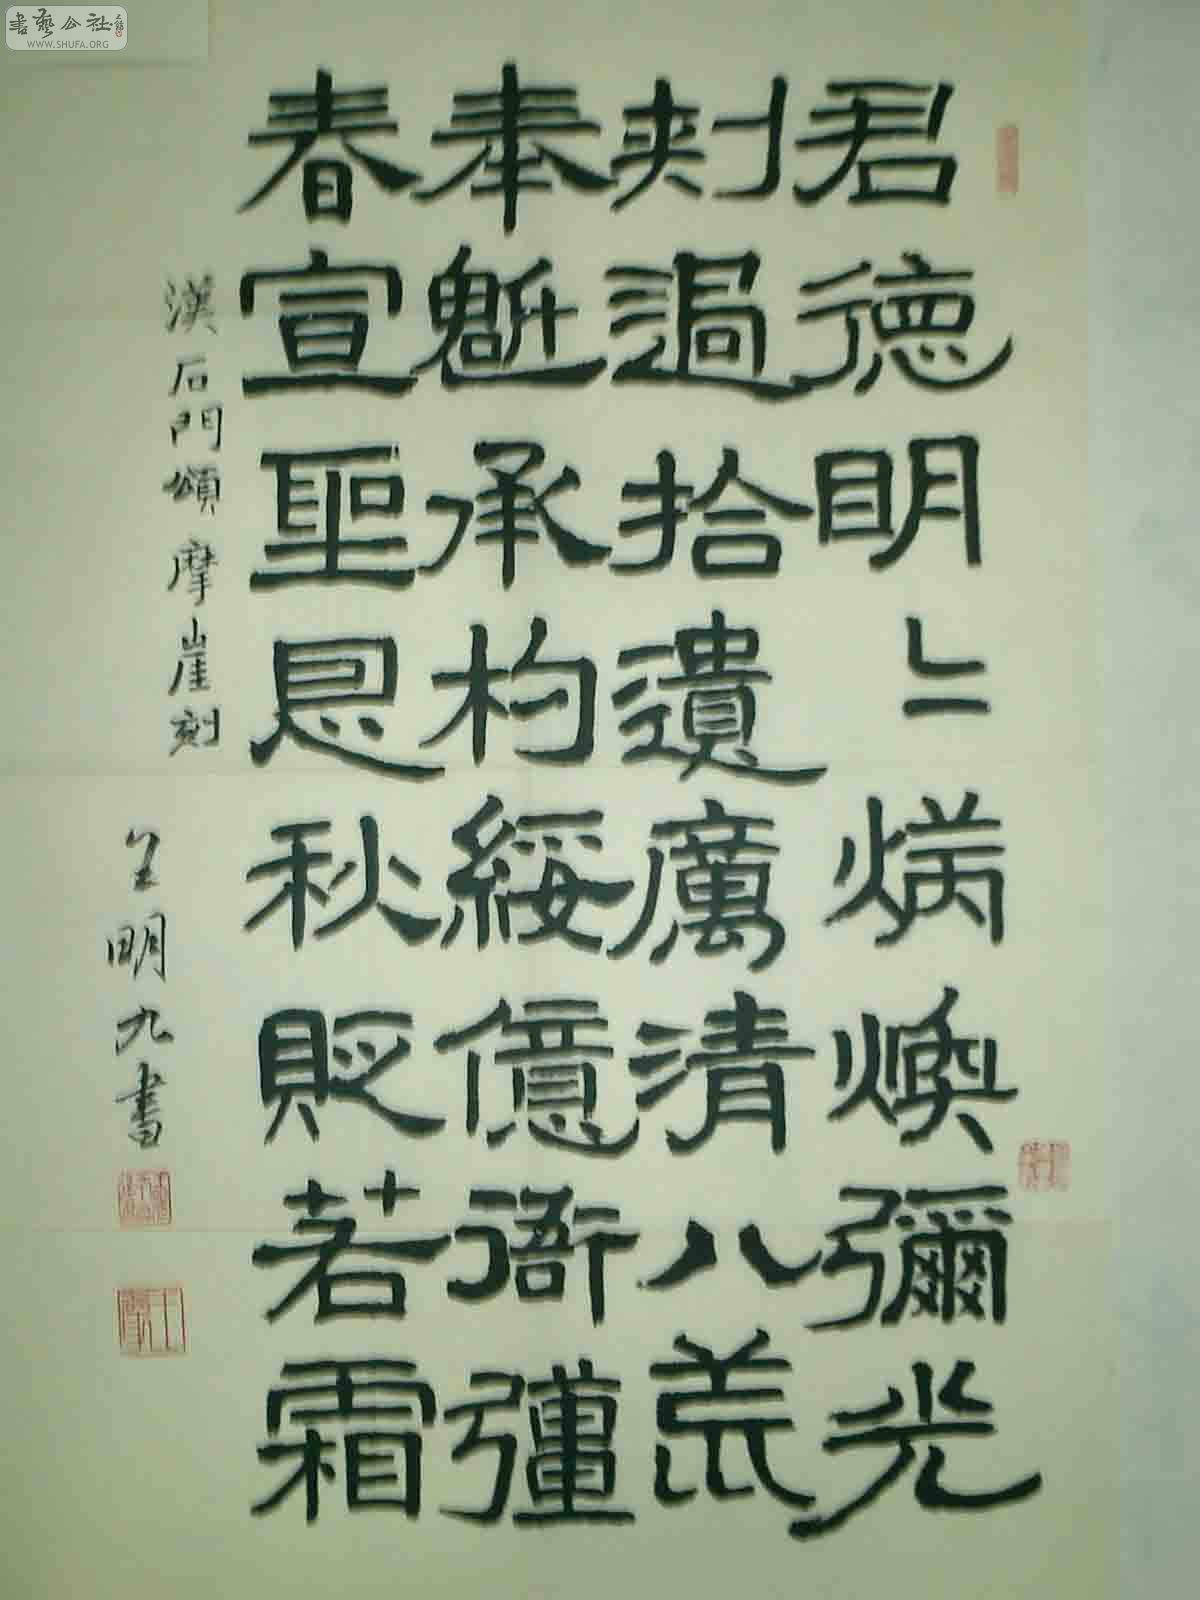 書藝公社
WWW.SHUFA.ORG
君德明〻炳煥彌光
刺過拾遺厲清八荒
奉魁承杓綏億衙彊
春宣聖恩秋貶若霜
漢石門頌摩崖刻
王明九書